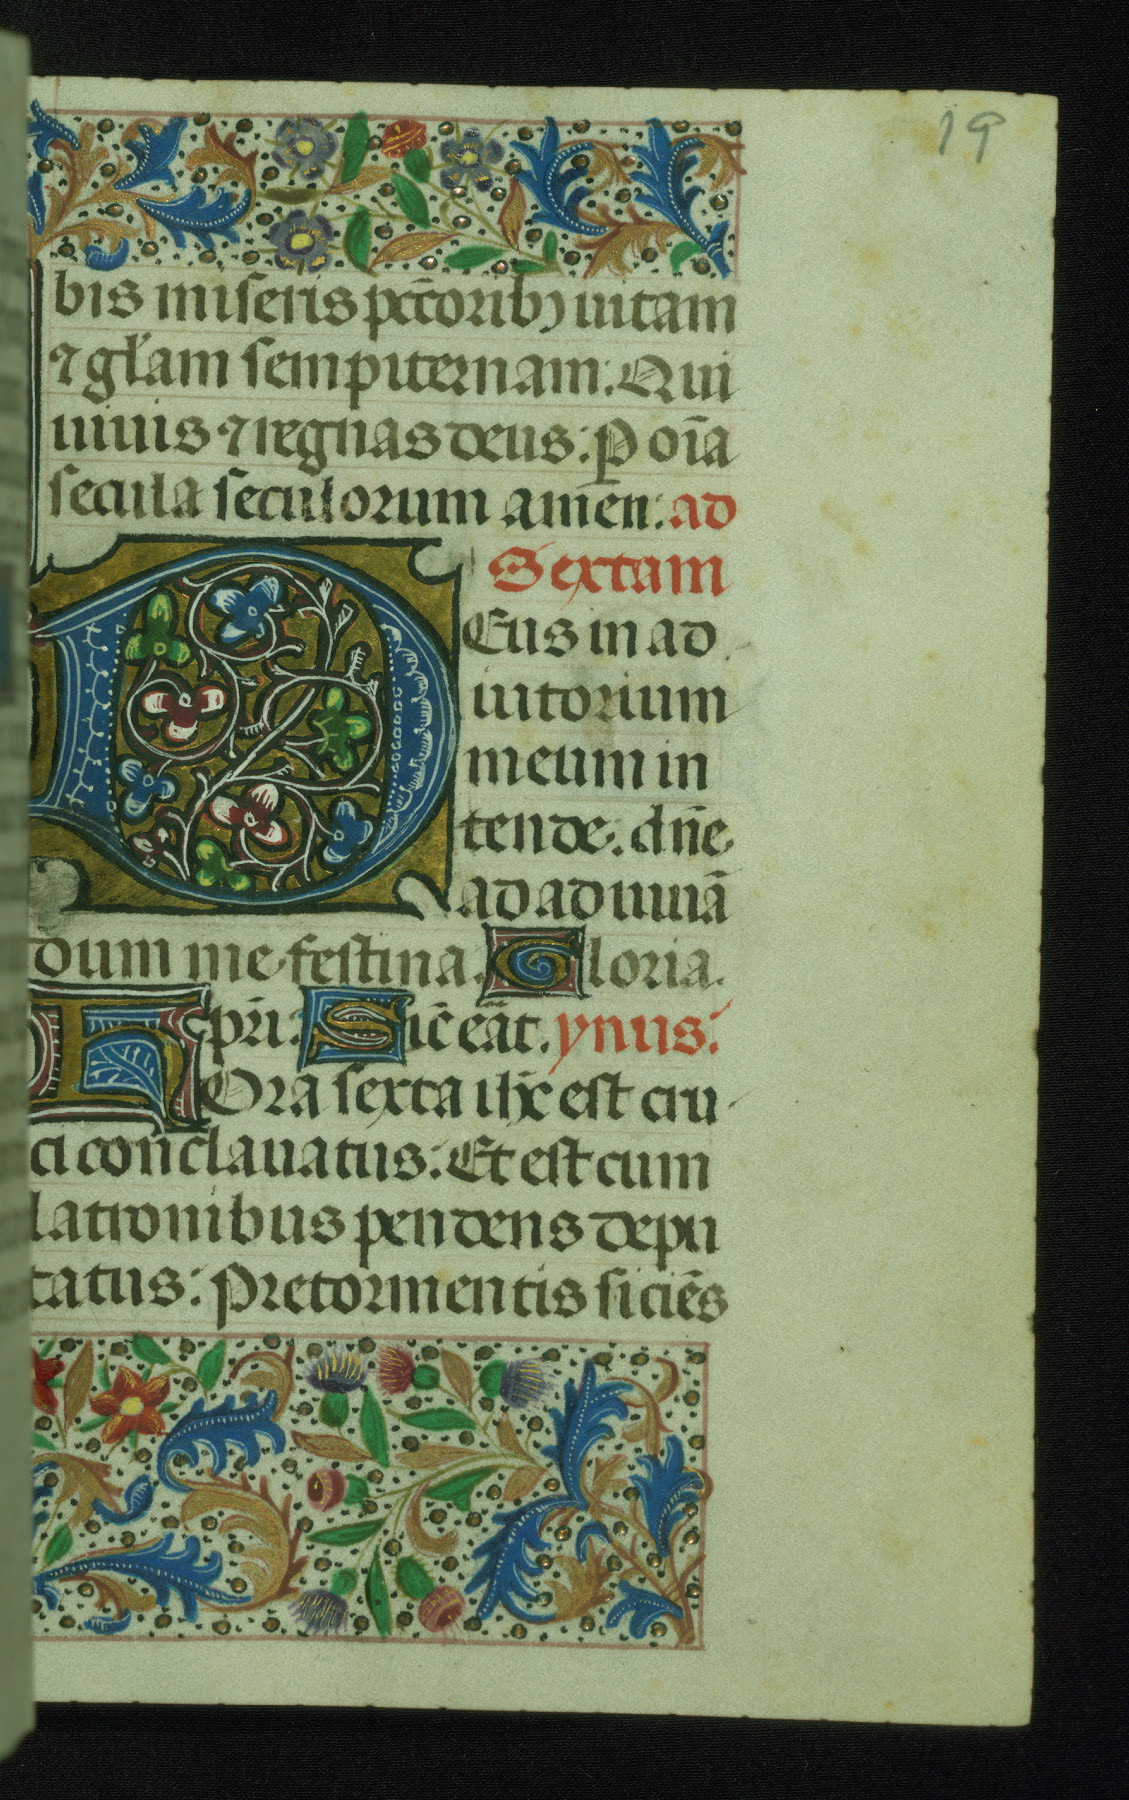 19
bis miseris pc̄toribꝫ uitam
⁊ gl̄am sempiternam: Qui
uiuis ⁊ regnas deus: P oīa
secula seculorum amen: ad
Sextam
DEus in ad
iutorium
meum in
tende. dn̄e
ad adiuuā
dum me festina. Gloria.
pr̄i: Sic̄ eāt. ynus:
hOra sexta ih̄c est cru
ci conclauatus: Et est cum
latronibus pendens depu
tatus: Pre tormentis siciēs